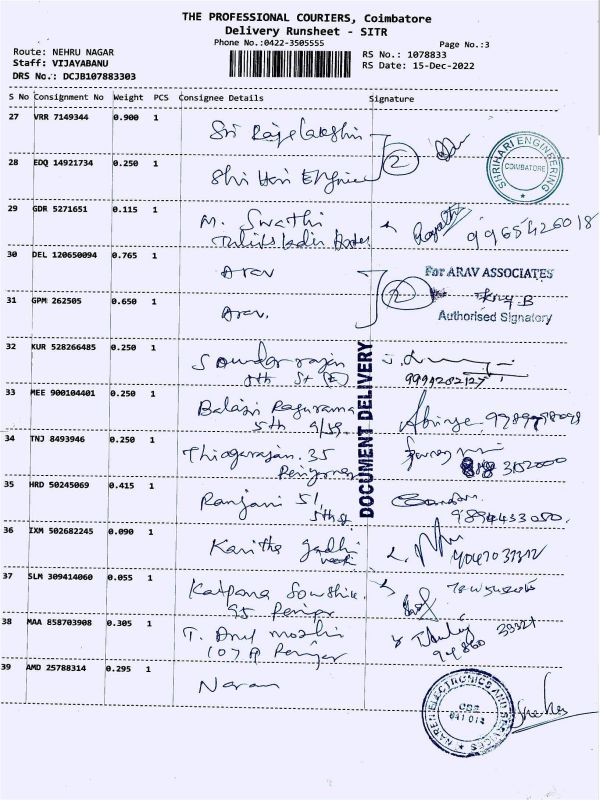 THE PROFESSIONAL COURIERS, Coimbatore
Delivery Runsheet - SITR
Phone No.:0422-3505555
Page No.:3
Route: NEHRU NAGAR
RS No.: 1078833
Staff: VIJAYABANU
RS Date: 15-Dec-2022
DRS No.: DCJB107883303
S No Consignment No Weight PCS Consignee Details Signature
27 VRR 7149344 0.900 1
Sri Rajalakshmi
2
SHRIHARI ENGINEERING
COIMBATORE
28 EDQ 14921734 0.250 1
Shri Hari
29 GDR 5271651 0.115 1
M. Swathi
9965426018
30 DEL 120650094 0.765 1
Arav
For ARAV ASSOCIATES
2
31 GPM 262505 0.650 1
Arav.
Authorised Signatory
DOCUMENT DELIVERY
32 KUR 528266485 0.250 1
Soundarrajan
5th St (E)
33 MEE 900104401 0.250 1
Balaji Ragurama
5th
34 TNJ 8493946 0.250 1
Thiagarajan. 35
35 HRD 50245069 0.415 1
Ranjani 51,
5th
9894433050.
36 IXM 502682245 0.090 1
Kavitha
37 SLM 309414060 0.055 1
Kalpana
95 Periyar
38 MAA 858703908 0.305 1
T. Anu
107 A Periyar
94860 33321
39 AMD 25788314 0.295 1
Naran
NAREN ELECTRONICS AND SERVICES
CBE
641 014